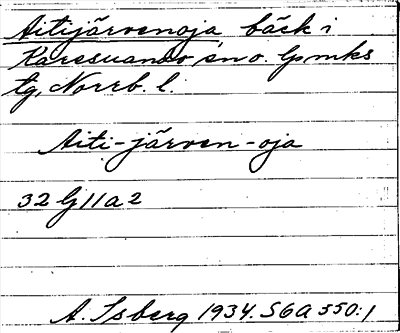 Aitijärvenoja bäck i
Karesuando sn o. lpmks
tg, Norrb. l.
Aiti-järven-oja
32 Gj 11 a 2
A. Isberg 1934. S6a 550:1